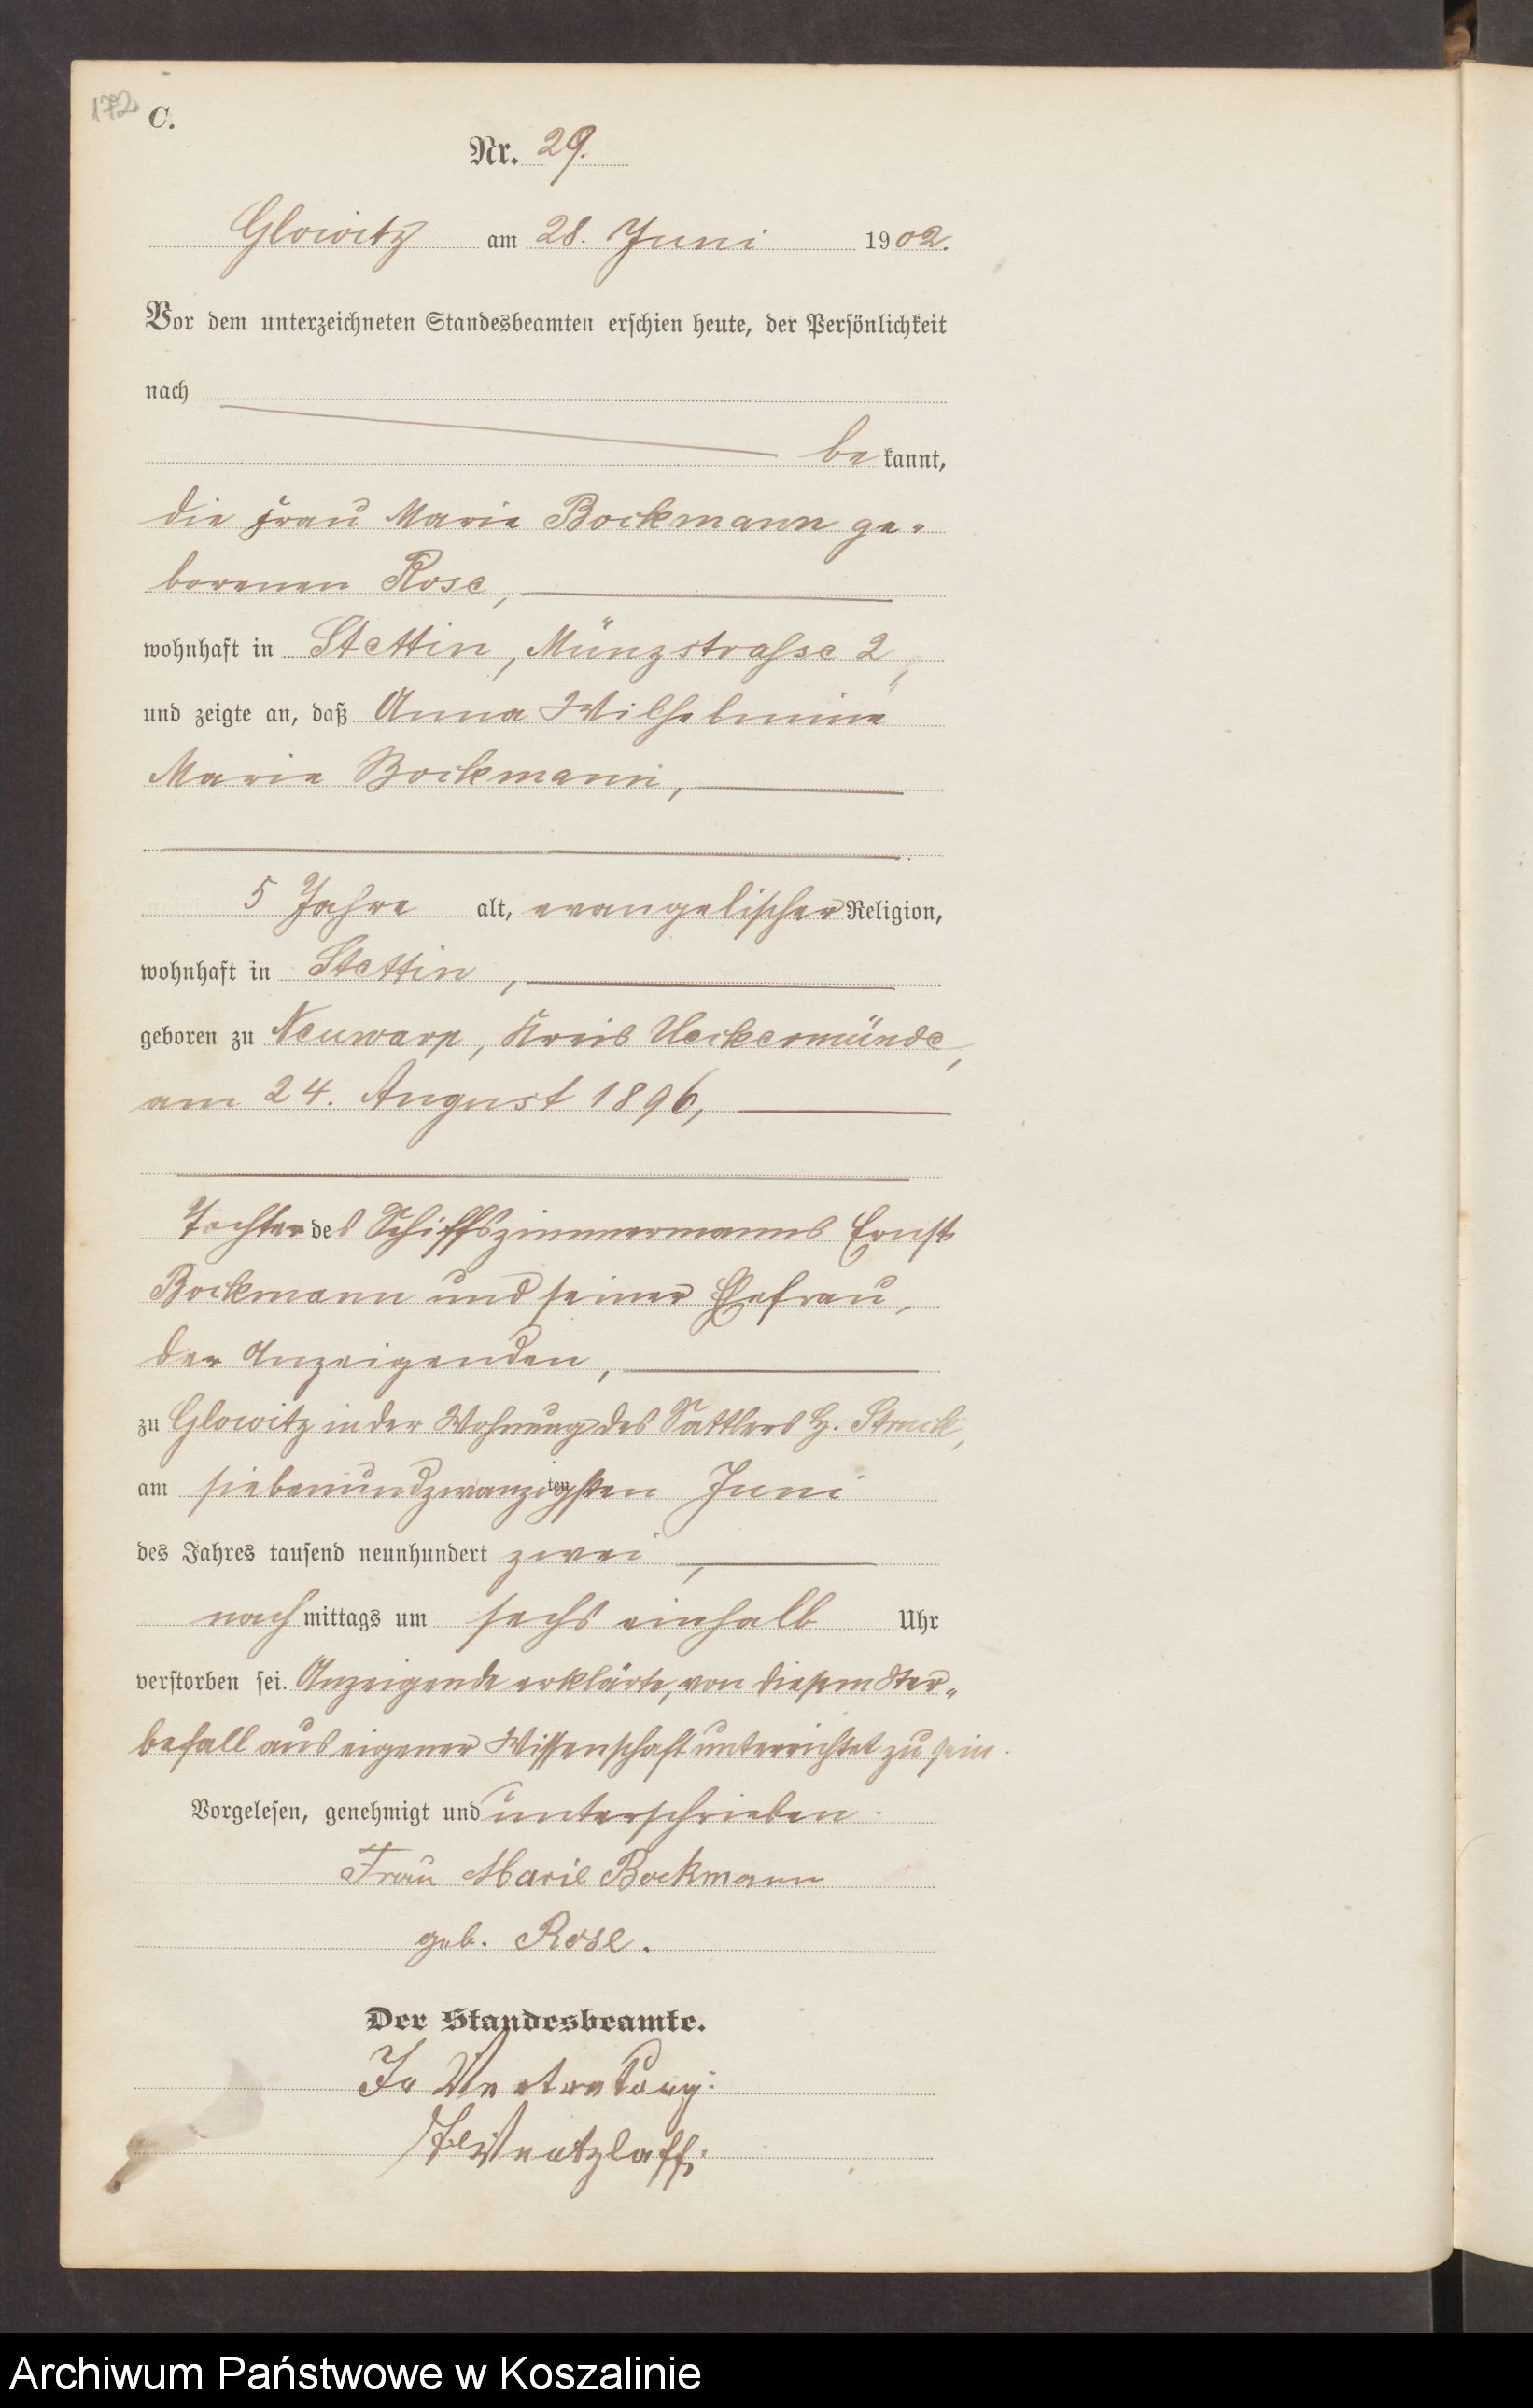 172
C.
Nr. 29.
Glowitz am 28. Juni 1902.
Vor dem unterzeichneten Standesbeamten erschien heute, der Persönlichkeit
nach
be kannt,
die Frau Marie Bockmann ge-
borenen Rose,
wohnhaft in Stettin, Münzstrasse 2,
und zeigte an, daß Anna Wilhelmine
Marie Bockmann,
5 Jahre alt, evangelischer Religion,
wohnhaft in Stettin,
geboren zu Neuwarp, Kreis Ueckermünde,
am 24. August 1896,
Tochter des Schiffszimmermanns Ernst
Bockmann und seiner Ehefrau,
der Anzeigenden,
zu Glowitz in der Wohnung des Sattlers H. Struck,
am siebenundzwanzigsten ten Juni
des Jahres tausend neunhundert zwei,
nach mittags um sechs einhalb Uhr
verstorben sei. Anzeigende erklärte, von diesem Ster-
befall aus eigener Wissenschaft unterrichtet zu sein.
Vorgelesen, genehmigt und unterschrieben.
Frau Marie Bockmann
geb. Rose.
Der Standesbeamte.
In Vertretung:
Wentzlaff.
Archiwum Państwowe w Koszalinie